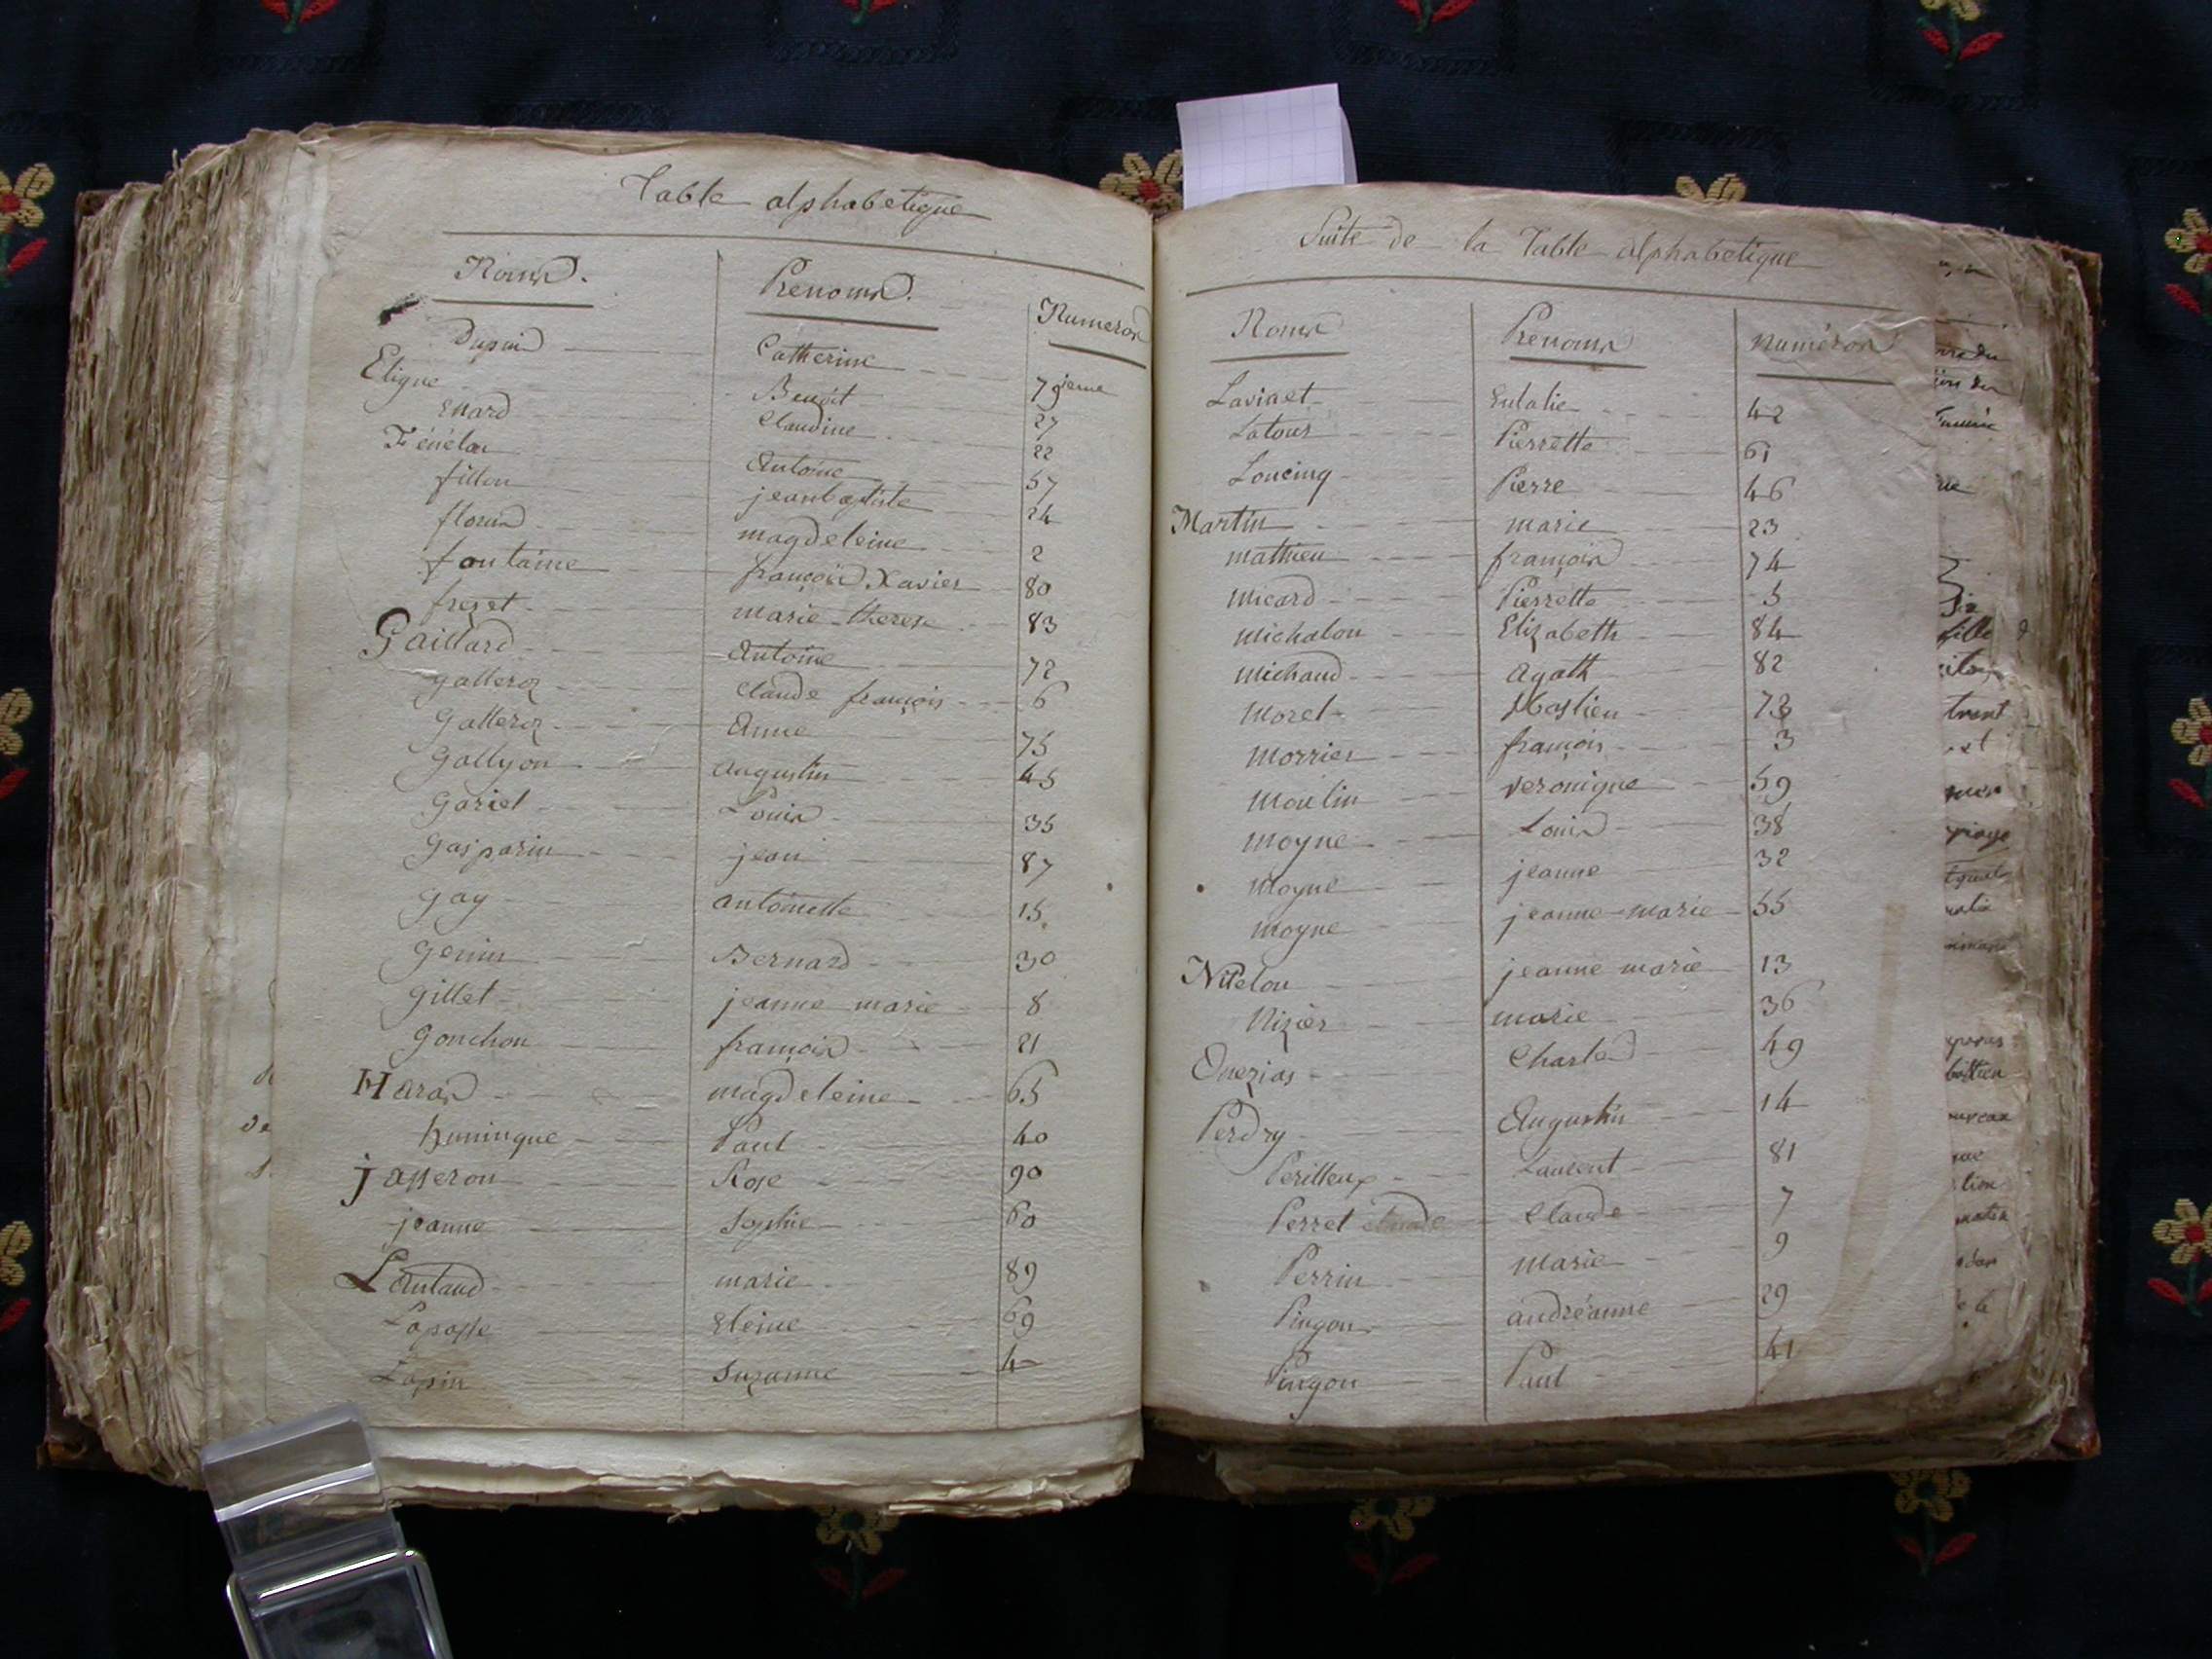 Table alphabetique
Noms. Prenoms. Numeros
Dupuis Catherine 79ieme
Eligne Benoit 27
Enard Claudine 22
Fénélon Antoine 57
fillon jean baptiste 24
florin magdeleine 2
fontaine françois Xavier 80
frezet marie therese 83
Gaillard Antoine 72
galleroz Claude françois 6
Galleroz Anne 75
Gallyon augustin 45
Gariel Louis 35
Gasparin jean 87
Gay antoinette 15
Genin Bernard 30
Gillet jeanne marie 8
Gonchon françois 21
Haras magdeleine 65
huningue Paul 40
jasseron Rose 90
jeanne Sophie 60
Lantaud marie 89
Lapasse Eleine 69
Lapin Suzanne 4
Suite de la Table alphabetique
Noms Prenoms numéros
Laviaet Eulalie 42
Latour Pierrette 61
Loucinq Pierre 46
Martin marie 23
mathieu françois 74
micard Pierrette 5
michalon Elizabeth 84
michaud agath 82
moret 73
morrier françois 3
moulin veronique 59
moyne Louis 38
moyne jeanne 32
moyne jeanne-marie 55
Nitelon jeanne marie 13
Nizier marie 36
Onezias Charles 49
Perdry Augustin 14
Perilleux Laurent 81
Perret Claude 7
Perrin marie 9
Pingon andréanne 29
Pingon Paul 41